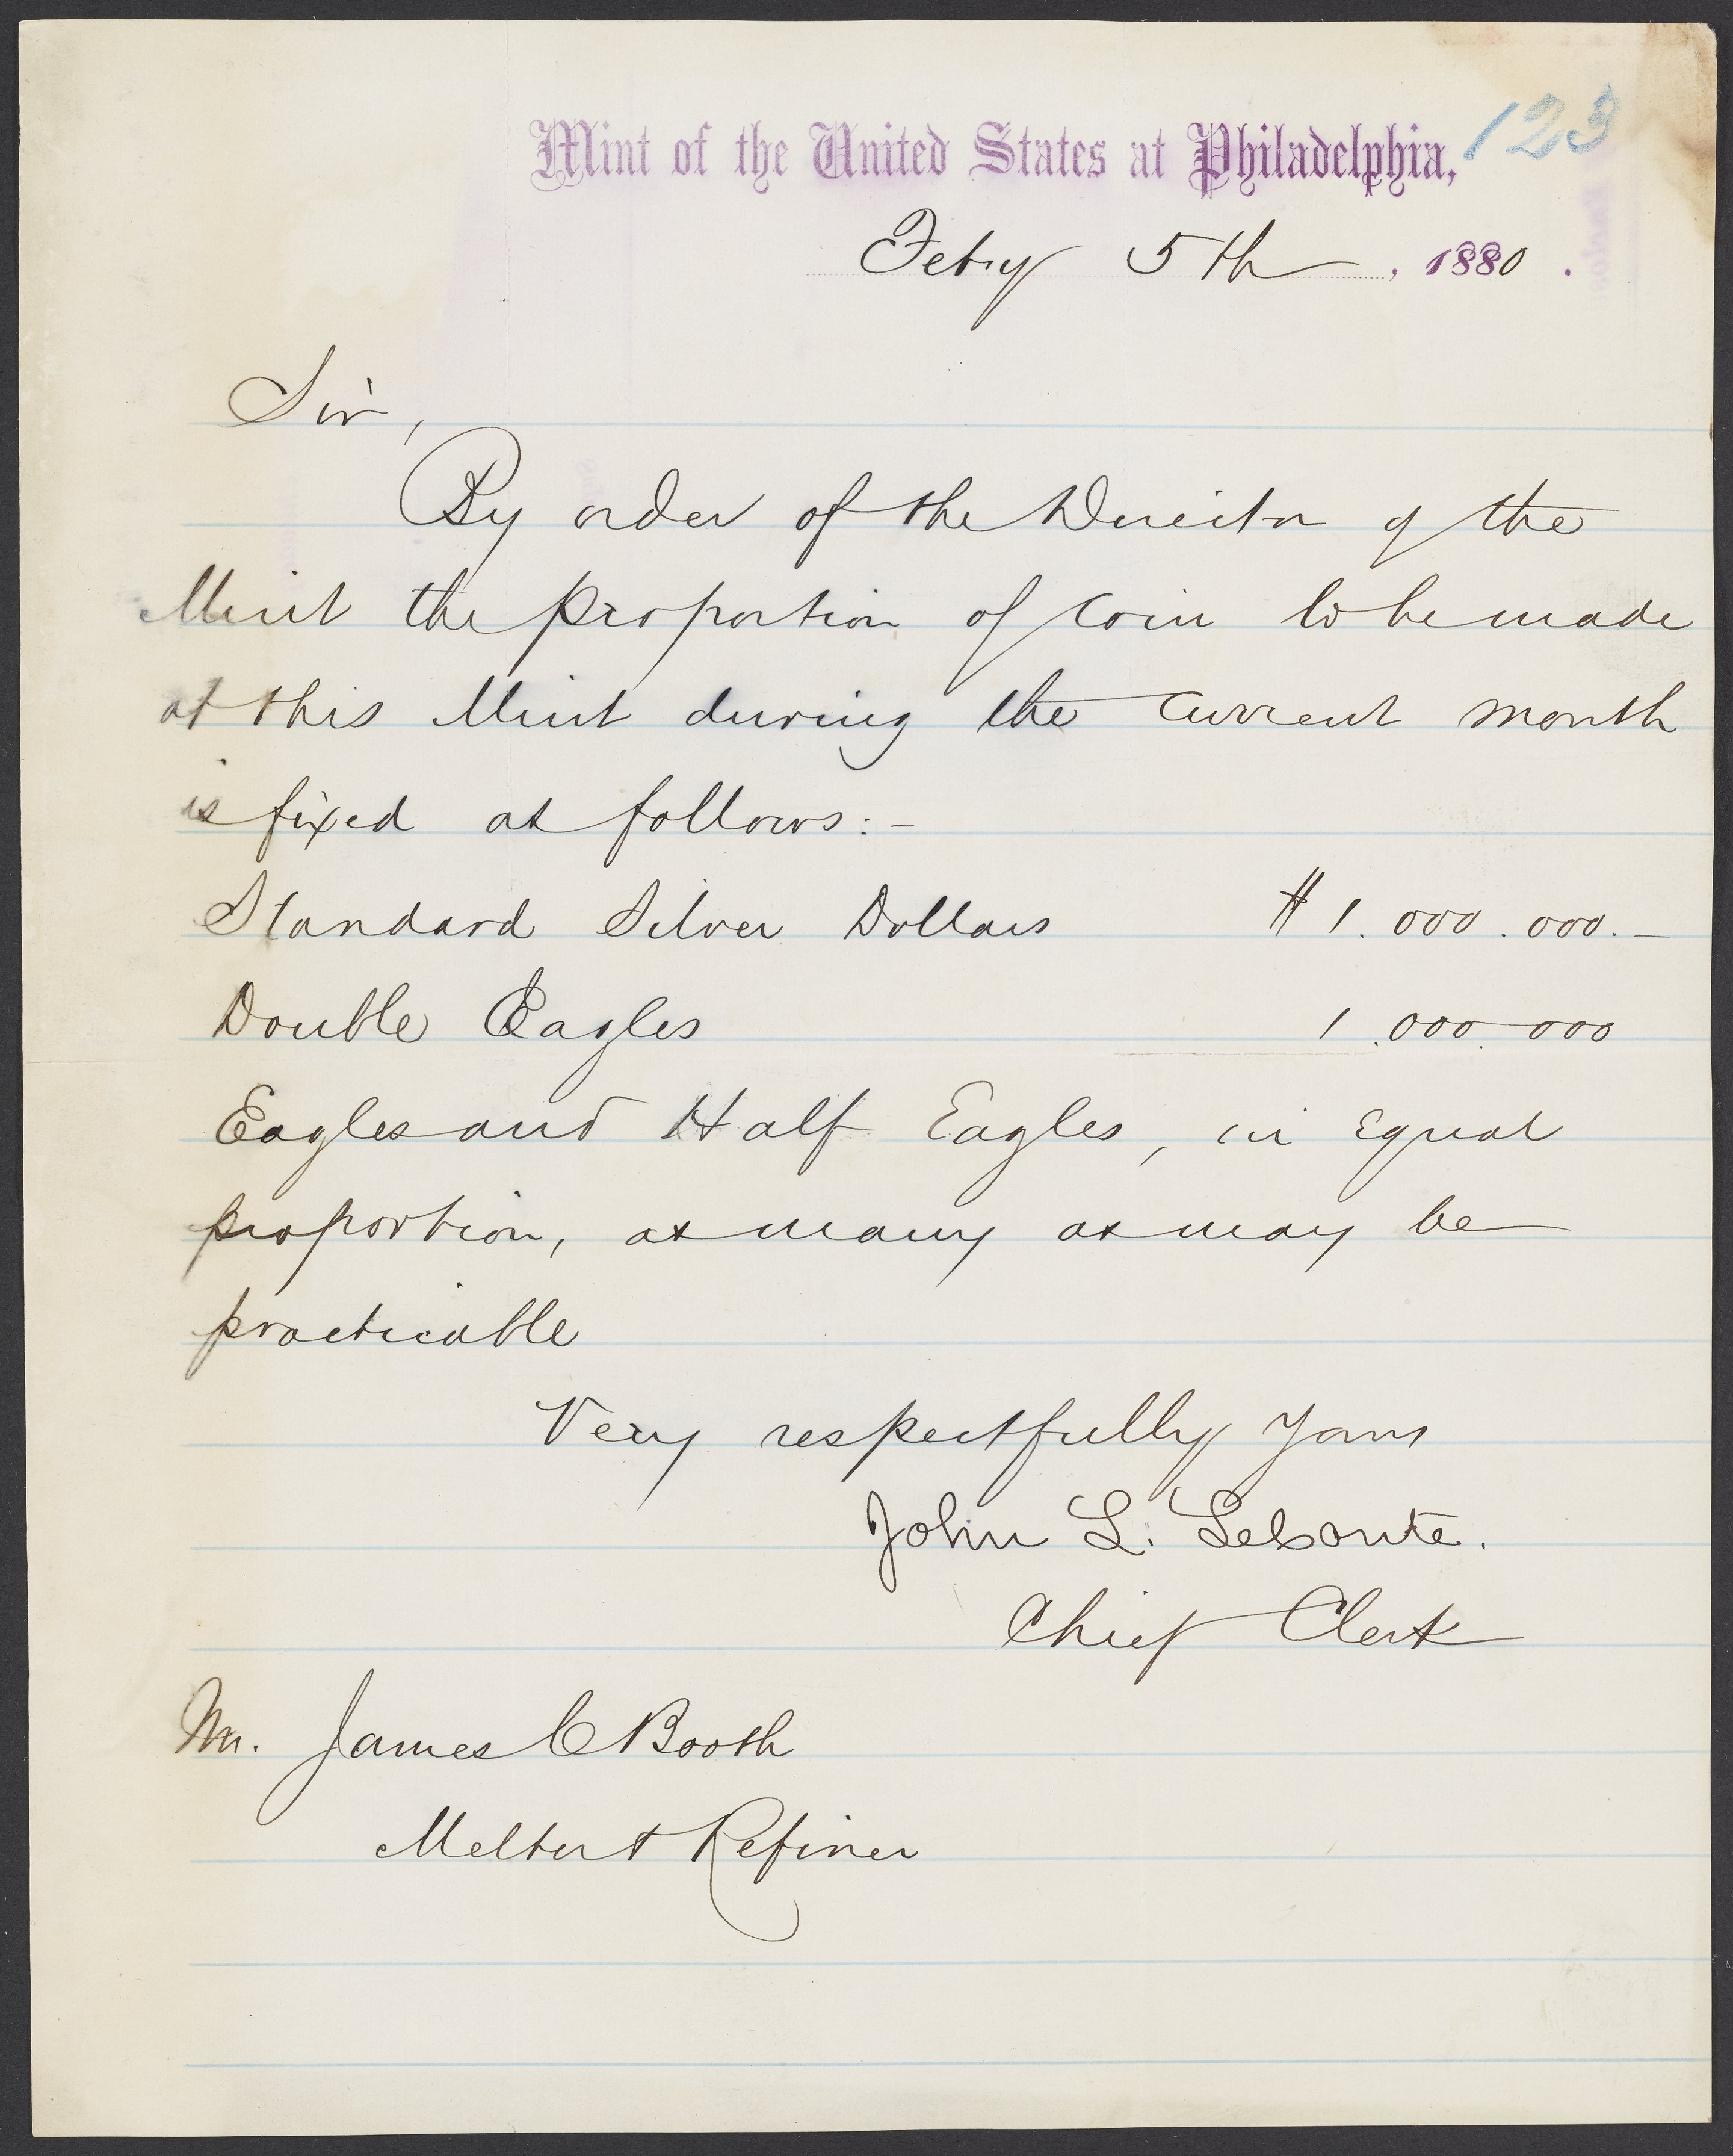 123
Mint of the United States at Philadelphia,
Feby 5th, 1880.
Sir,
By order of the Director of the
Mint the proportion of coin to be made
at this Mint during the current month
is fixed as follows:-
Standard Silver Dollars $1.000.000.-
Double Eagles 1.000.000
Eagles and Half Eagles, in equal
proportion, as many as may be
practicable
Very respectfully Yours
John L. LeConte.
Chief Clerk
Mr. James C Booth
Melter & Refiner